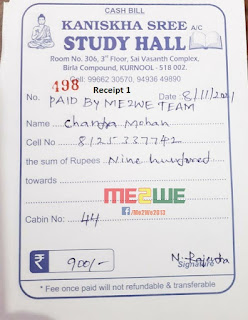 CASH BILL
KANISKHA SREE A/C
STUDY HALL
Room No. 306, 3rd Floor, Sai Vasanth Complex,
Birla Compound, KURNOOL - 518 002.
Cell: 99662 30570, 94936 49890
498 Receipt 1
No. PAID BY ME2WE TEAM Date: 8/11/2021
Name Chandra Mohan
Cell No 8125337742
the sum of Rupees Nine hundred
towards
ME2WE
/Me2We2013
Cabin No: 44
₹ 900/-
Signature
* Fee once paid will not refundable & transferable